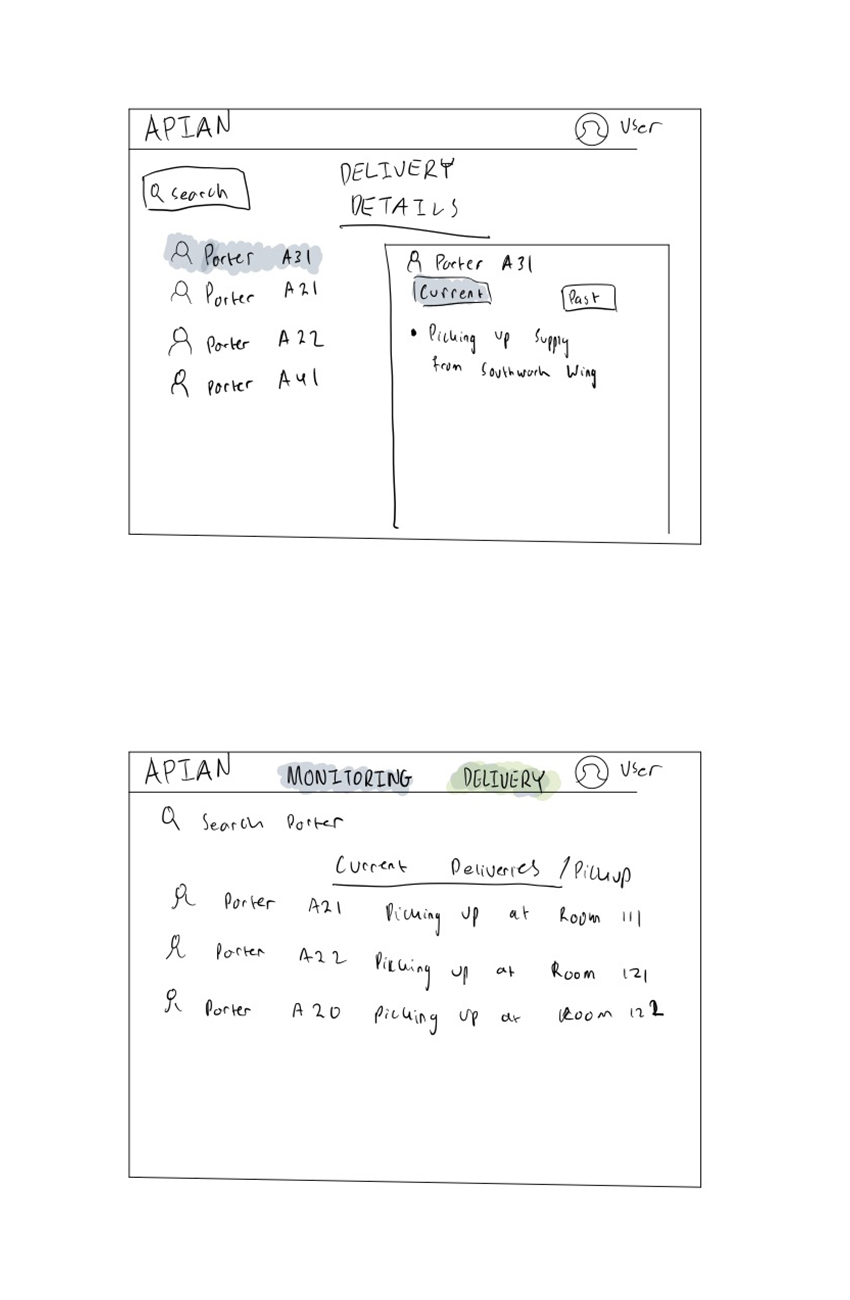 APIAN
User
DELIVERY
DETAILS
Search
Porter A31
Porter A21
Porter A22
Porter A41
Porter A31
Current
Past
• Picking up supply
from Southwark Wing
APIAN
MONITORING
DELIVERY
User
Search Porter
Current Deliveries / Pickup
Porter A21 Picking up at Room 111
Porter A22 Picking up at Room 121
Porter A20 Picking up at Room 122